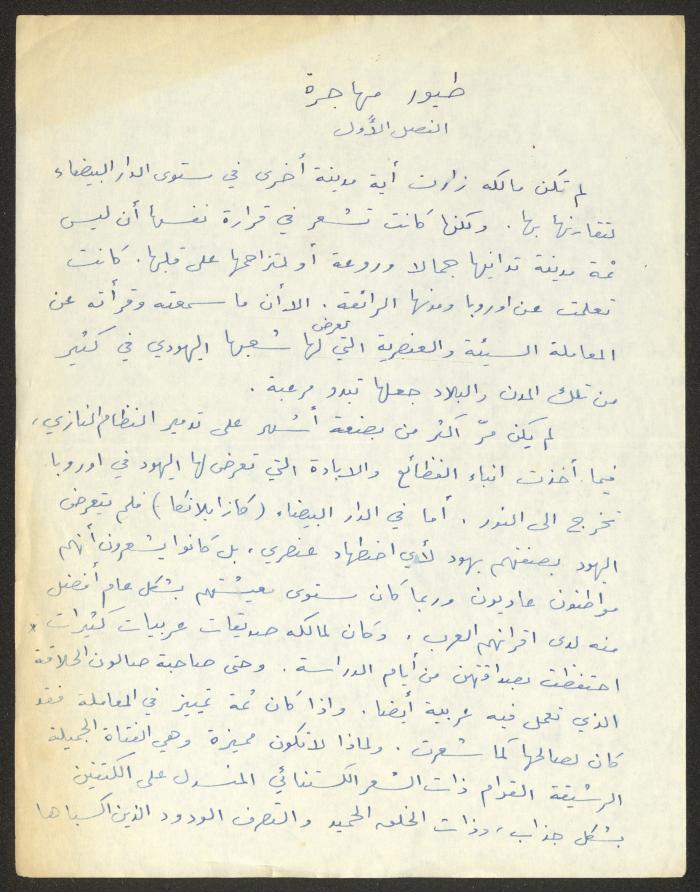 طيور مهاجرة
الفصل الأول
لم تكن مالكه زارت أية مدينة أخرى في مستوى الدار البيضاء
لتقارنها بها. ولكنها كانت تشعر في قرارة نفسها أن ليس
ثمة مدينة تدانيها جمالا وروعة أو تزاحمها على قلبها. كانت
تعلمت عن اوروبا ومدنها الرائعة. الا أن ما سمعته وقرأته عن
المعاملة السيئة والعنصرية التي تعرض لها شعبها اليهودي في كثير
من تلك المدن والبلاد جعلها تبدو مرعبة.
لم يكن مرّ اكثر من بضعة أشهر على تدمير النظام النازي،
فيما أخذت انباء الفظائع والابادة التي تعرض لها اليهود في اوروبا
تخرج الى النور. أما في الدار البيضاء (كازابلانكا) فلم يتعرض
اليهود بصفتهم يهود لأي اضطهاد عنصري، بل كانوا يشعرون أنهم
مواطنون عاديون وربما كان مستوى معيشتهم بشكل عام أفضل
منه لدى اقرانهم العرب. وكان لمالكه صديقات عربيات كثيرات *
احتفظت بصداقتهن من أيام الدراسة. وحتى صاحبة صالون الحلاقة
الذي تعمل فيه عربية أيضا. واذا كان ثمة تمييز في المعاملة فقد
كان لصالحها كما شعرت. ولماذا لا تكون مميزة وهي الفتاة الجميلة
الرشيقة القوام ذات الشعر الكستنائي المنسدل على الكتفين
بشكل جذاب، وذات الخلق الحميد والتصرف الودود الذين اكسباها